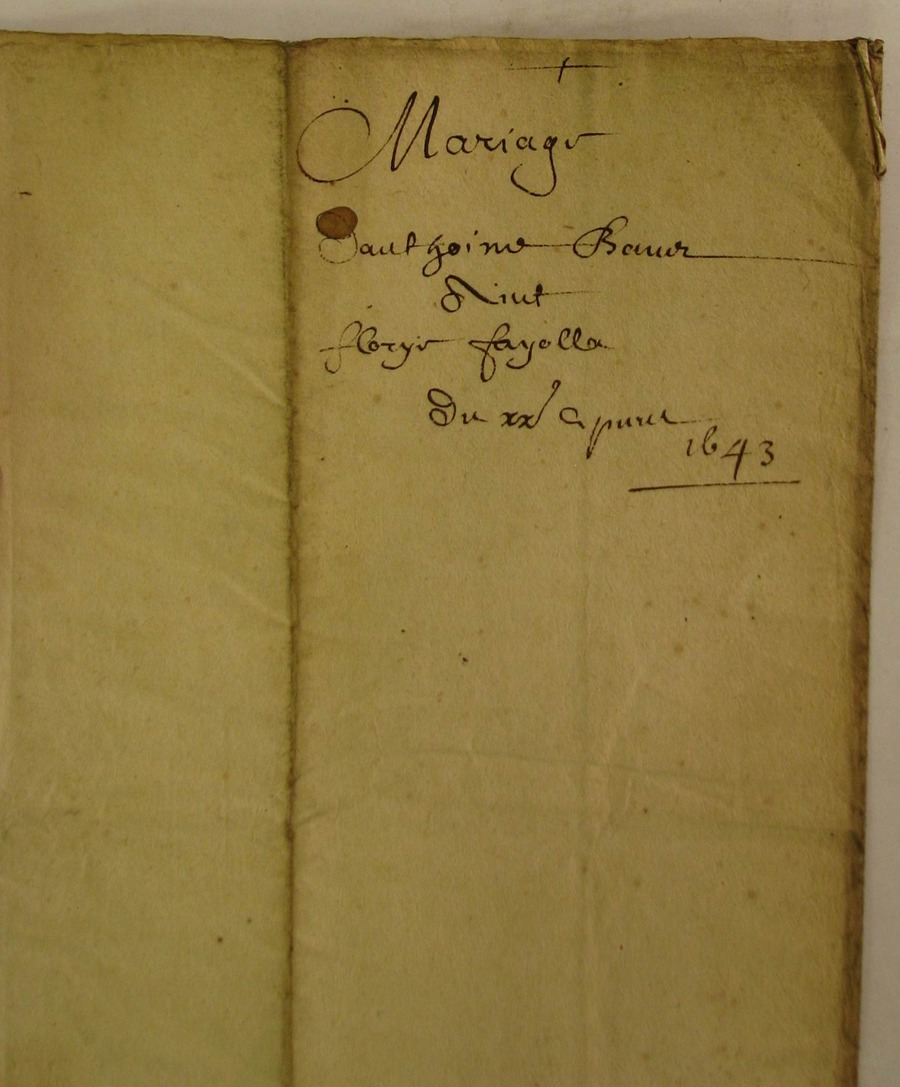 Mariage
Danthoine
florye fayolla
Du xx^e apuril
1643